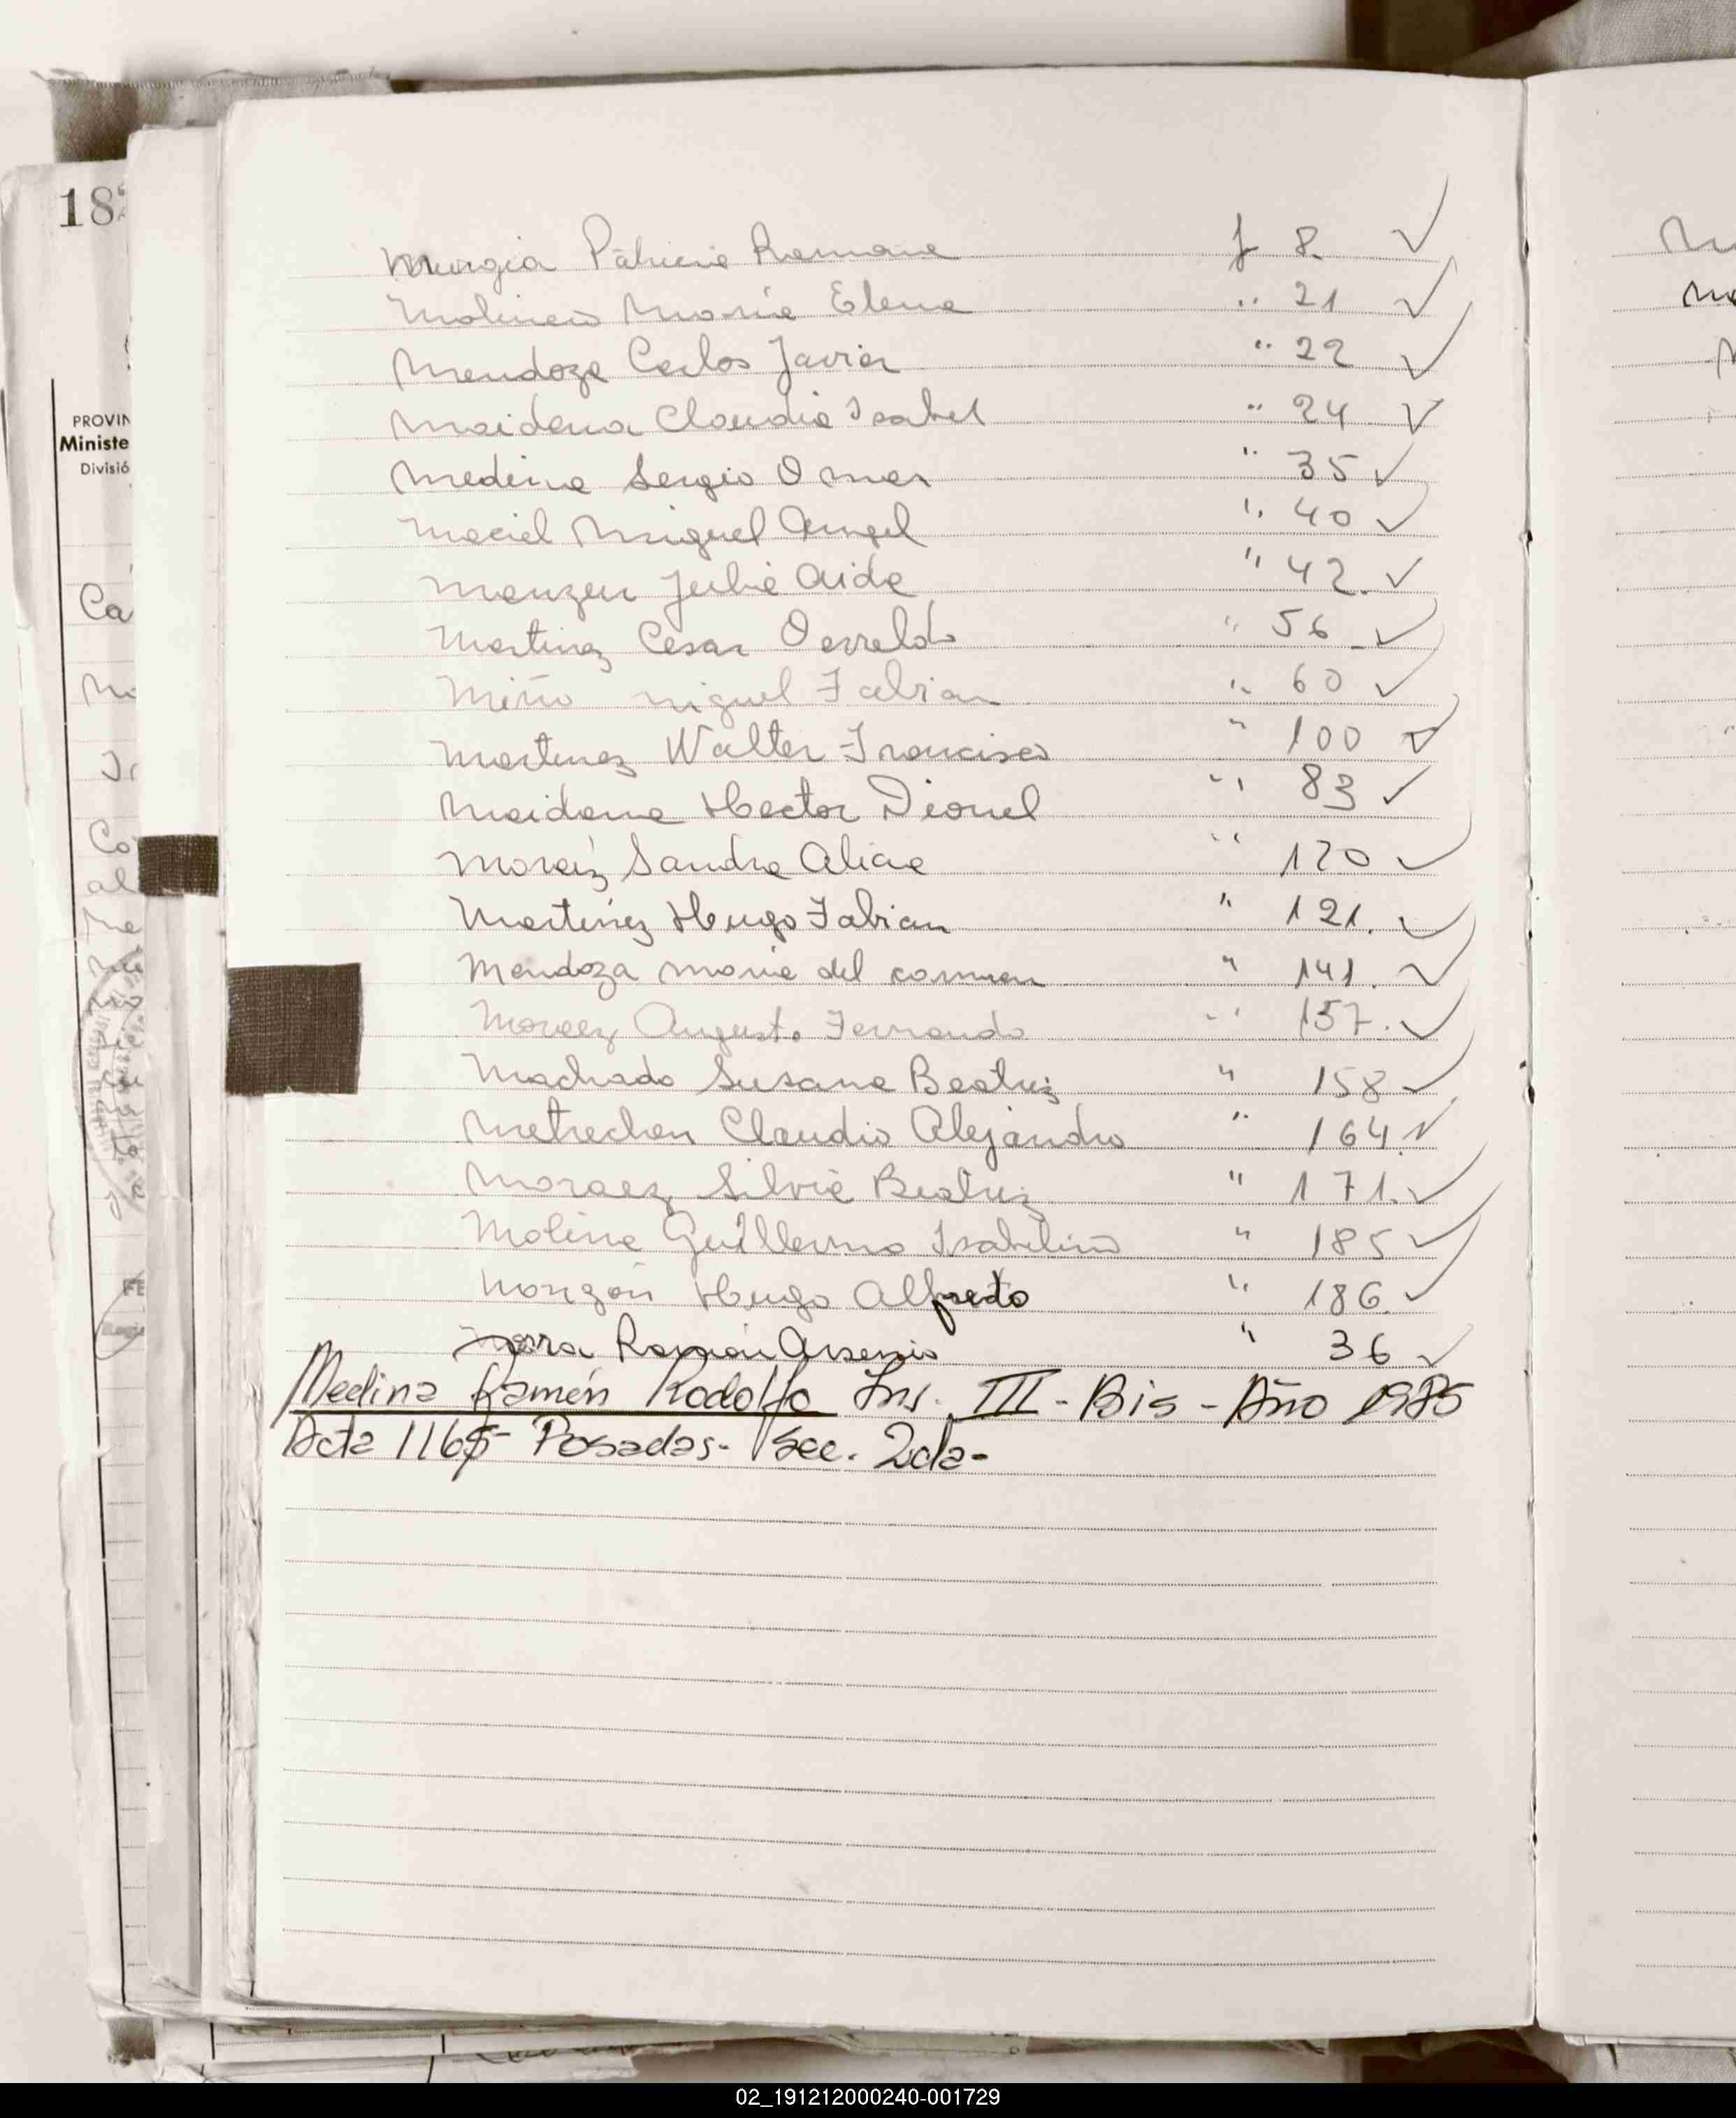 Murgia Patricia Romana f 8. ✓
Molinero Maria Elena " 21 ✓
Mendoza Carlos Javier " 22 ✓
Maidana Claudia Isabel " 24 ✓
Medina Sergio Omar " 35 ✓
Maciel Miguel Angel " 40 ✓
Julia Aida " 42. ✓
Martinez Cesar Osvaldo " 56 ✓
Miño Miguel Fabian " 60 ✓
Martinez Walter Francisco " 100 ✓
Maidana Hector Dionel " 83 ✓
Moraiz Sandra Alicia " 120 ✓
Martinez Hugo Fabian " 121. ✓
Mendoza Maria del carmen " 141. ✓
Moraez Augusto Fernando " 157. ✓
Machado Susana Beatriz " 158 ✓
Claudio Alejandro " 164. ✓
Moraez Silvia Beatriz " 171. ✓
Molina Guillermo Isabelino " 185 ✓
Monzón Hugo Alfredo " 186. ✓
Ramón Arsenio " 36 ✓
Medina Ramón Rodolfo Ins. III - Bis - Año 1985
Acta 1165 - Posadas - Sec. 2da -
18
PROVIN
Ministe
Divisió
Ca
Co
al
02_191212000240-001729